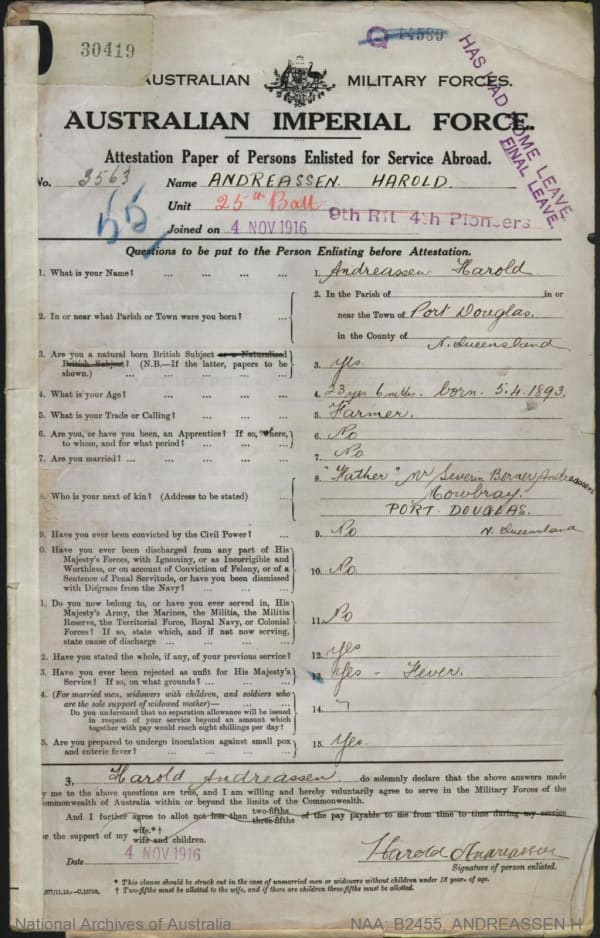 30419
Q 14589
HAS HAD HOME LEAVE
FINAL LEAVE.
AUSTRALIAN MILITARY FORCES.
AUSTRALIAN IMPERIAL FORCE.
Attestation Paper of Persons Enlisted for Service Abroad.
No. 3563 Name ANDREASSEN. HAROLD.
55
Unit 25th Batt
Joined on 4 NOV 1916 9th Rft 4th Pioneers
Questions to be put to the Person Enlisting before Attestation.
1. What is your Name? ... ... ... ... 1. Andreassen Harold
2. In or near what Parish or Town were you born? ... 2. In the Parish of in or
near the Town of Port Douglas.
in the County of N. Queensland
3. Are you a natural born British Subject or a Naturalised
British Subject? (N.B.—If the latter, papers to be
shown.) ... ... ... ... 3. Yes.
4. What is your Age? ... ... ... ... 4. 23 yrs 6 mths. born. 5.4.1893.
5. What is your Trade or Calling? ... ... ... 5. Farmer.
6. Are you, or have you been, an Apprentice? If so, where,
to whom, and for what period? ... ... 6. No
7. Are you married? ... ... ... ... 7. No
8. Who is your next of kin? (Address to be stated) ... 8. "Father" Mr Severin Berner Andreassen
Mowbray.
PORT DOUGLAS.
N. Queensland
9. Have you ever been convicted by the Civil Power? ... 9. No
0. Have you ever been discharged from any part of His
Majesty's Forces, with Ignominy, or as Incorrigible and
Worthless, or on account of Conviction of Felony, or of a
Sentence of Penal Servitude, or have you been dismissed
with Disgrace from the Navy? ... ... 10. No.
1. Do you now belong to, or have you ever served in, His
Majesty's Army, the Marines, the Militia, the Militia
Reserve, the Territorial Force, Royal Navy, or Colonial
Forces? If so, state which, and if not now serving,
state cause of discharge ... ... ... 11. No
2. Have you stated the whole, if any, of your previous service? 12. Yes
3. Have you ever been rejected as unfit for His Majesty's
Service? If so, on what grounds? ... ... 13. Yes - Fever.
4. (For married men, widowers with children, and soldiers who
are the sole support of widowed mother)—
Do you understand that no separation allowance will be issued
in respect of your service beyond an amount which
together with pay would reach eight shillings per day? 14.
5. Are you prepared to undergo inoculation against small pox
and enteric fever? ... ... ... ... 15. Yes.
I, Harold Andreassen. do solemnly declare that the above answers made
by me to the above questions are true, and I am willing and hereby voluntarily agree to serve in the Military Forces of the
Commonwealth of Australia within or beyond the limits of the Commonwealth.
And I further agree to allot not less than two-fifths three-fifths of the pay payable to me from time to time during my service
for the support of my wife.*† wife and children.
Date 4 NOV 1916 Harold Andreassen
Signature of person enlisted.
* This clause should be struck out in the case of unmarried men or widowers without children under 18 years of age.
† Two-fifths must be allotted to the wife, and if there are children three-fifths must be allotted.
National Archives of Australia NAA: B2455, ANDREASSEN H